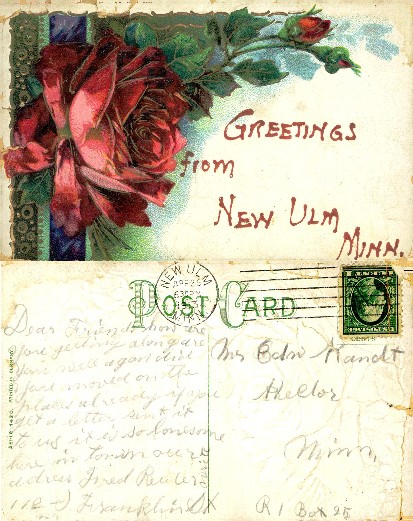 GREETINGS
from
NEW ULM
MINN.
NEW ULM
MINN.
POST CARD
Dear Friend how are
you getting along are
you
you moved on the
place already if you
get a letter sent it
to us it is so lonesome
here in town our
adress Fred
112 Franklin St
Mrs Edw
Hector
Minn.
R 1 Box 25